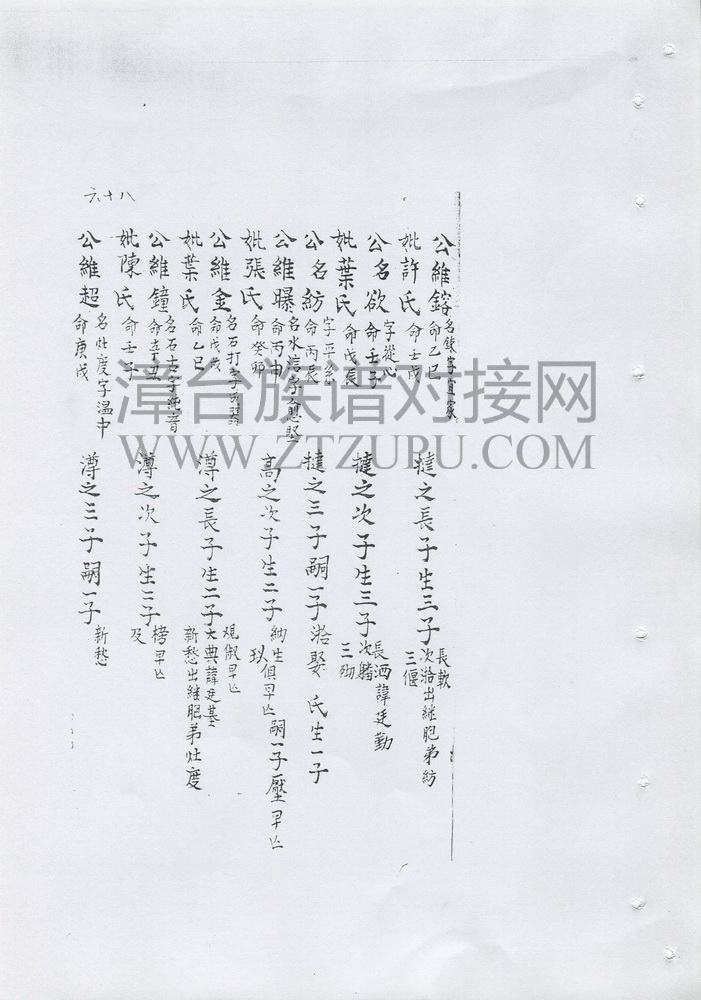 六十八
公維鎔 名鍊字宜家 命乙巳 撻之長子生三子 長軟 次涾出継胞弟紡 三偃
妣許氏 命壬戌
公名欲 字從心 命壬子 撻之次子生三子 長洒諱廷勤 次躋 三砌
妣葉氏 命戊辰
公名紡 字平糸 命丙辰 撻之三子嗣一子涾娶 氏生一子
公維曝 名水涾字愈堅 命丙申 高之次子生二子 納生 玖 俱早亡嗣一子壓早亡
妣張氏 命癸卯
公維金 名石打字 命戊戌 漙之長子生二子 观俶早亡 大典諱廷基 新愁出継胞弟灶度
妣葉氏 命乙巳
公維鐘 名石古字純音 命辛丑 漙之次子生二子 榜早亡 及
妣陳氏 命壬子
公維超 名灶度字温中 命庚戌 漙之三子嗣一子 新愁
漳台族谱对接网
WWW.ZTZUPU.COM